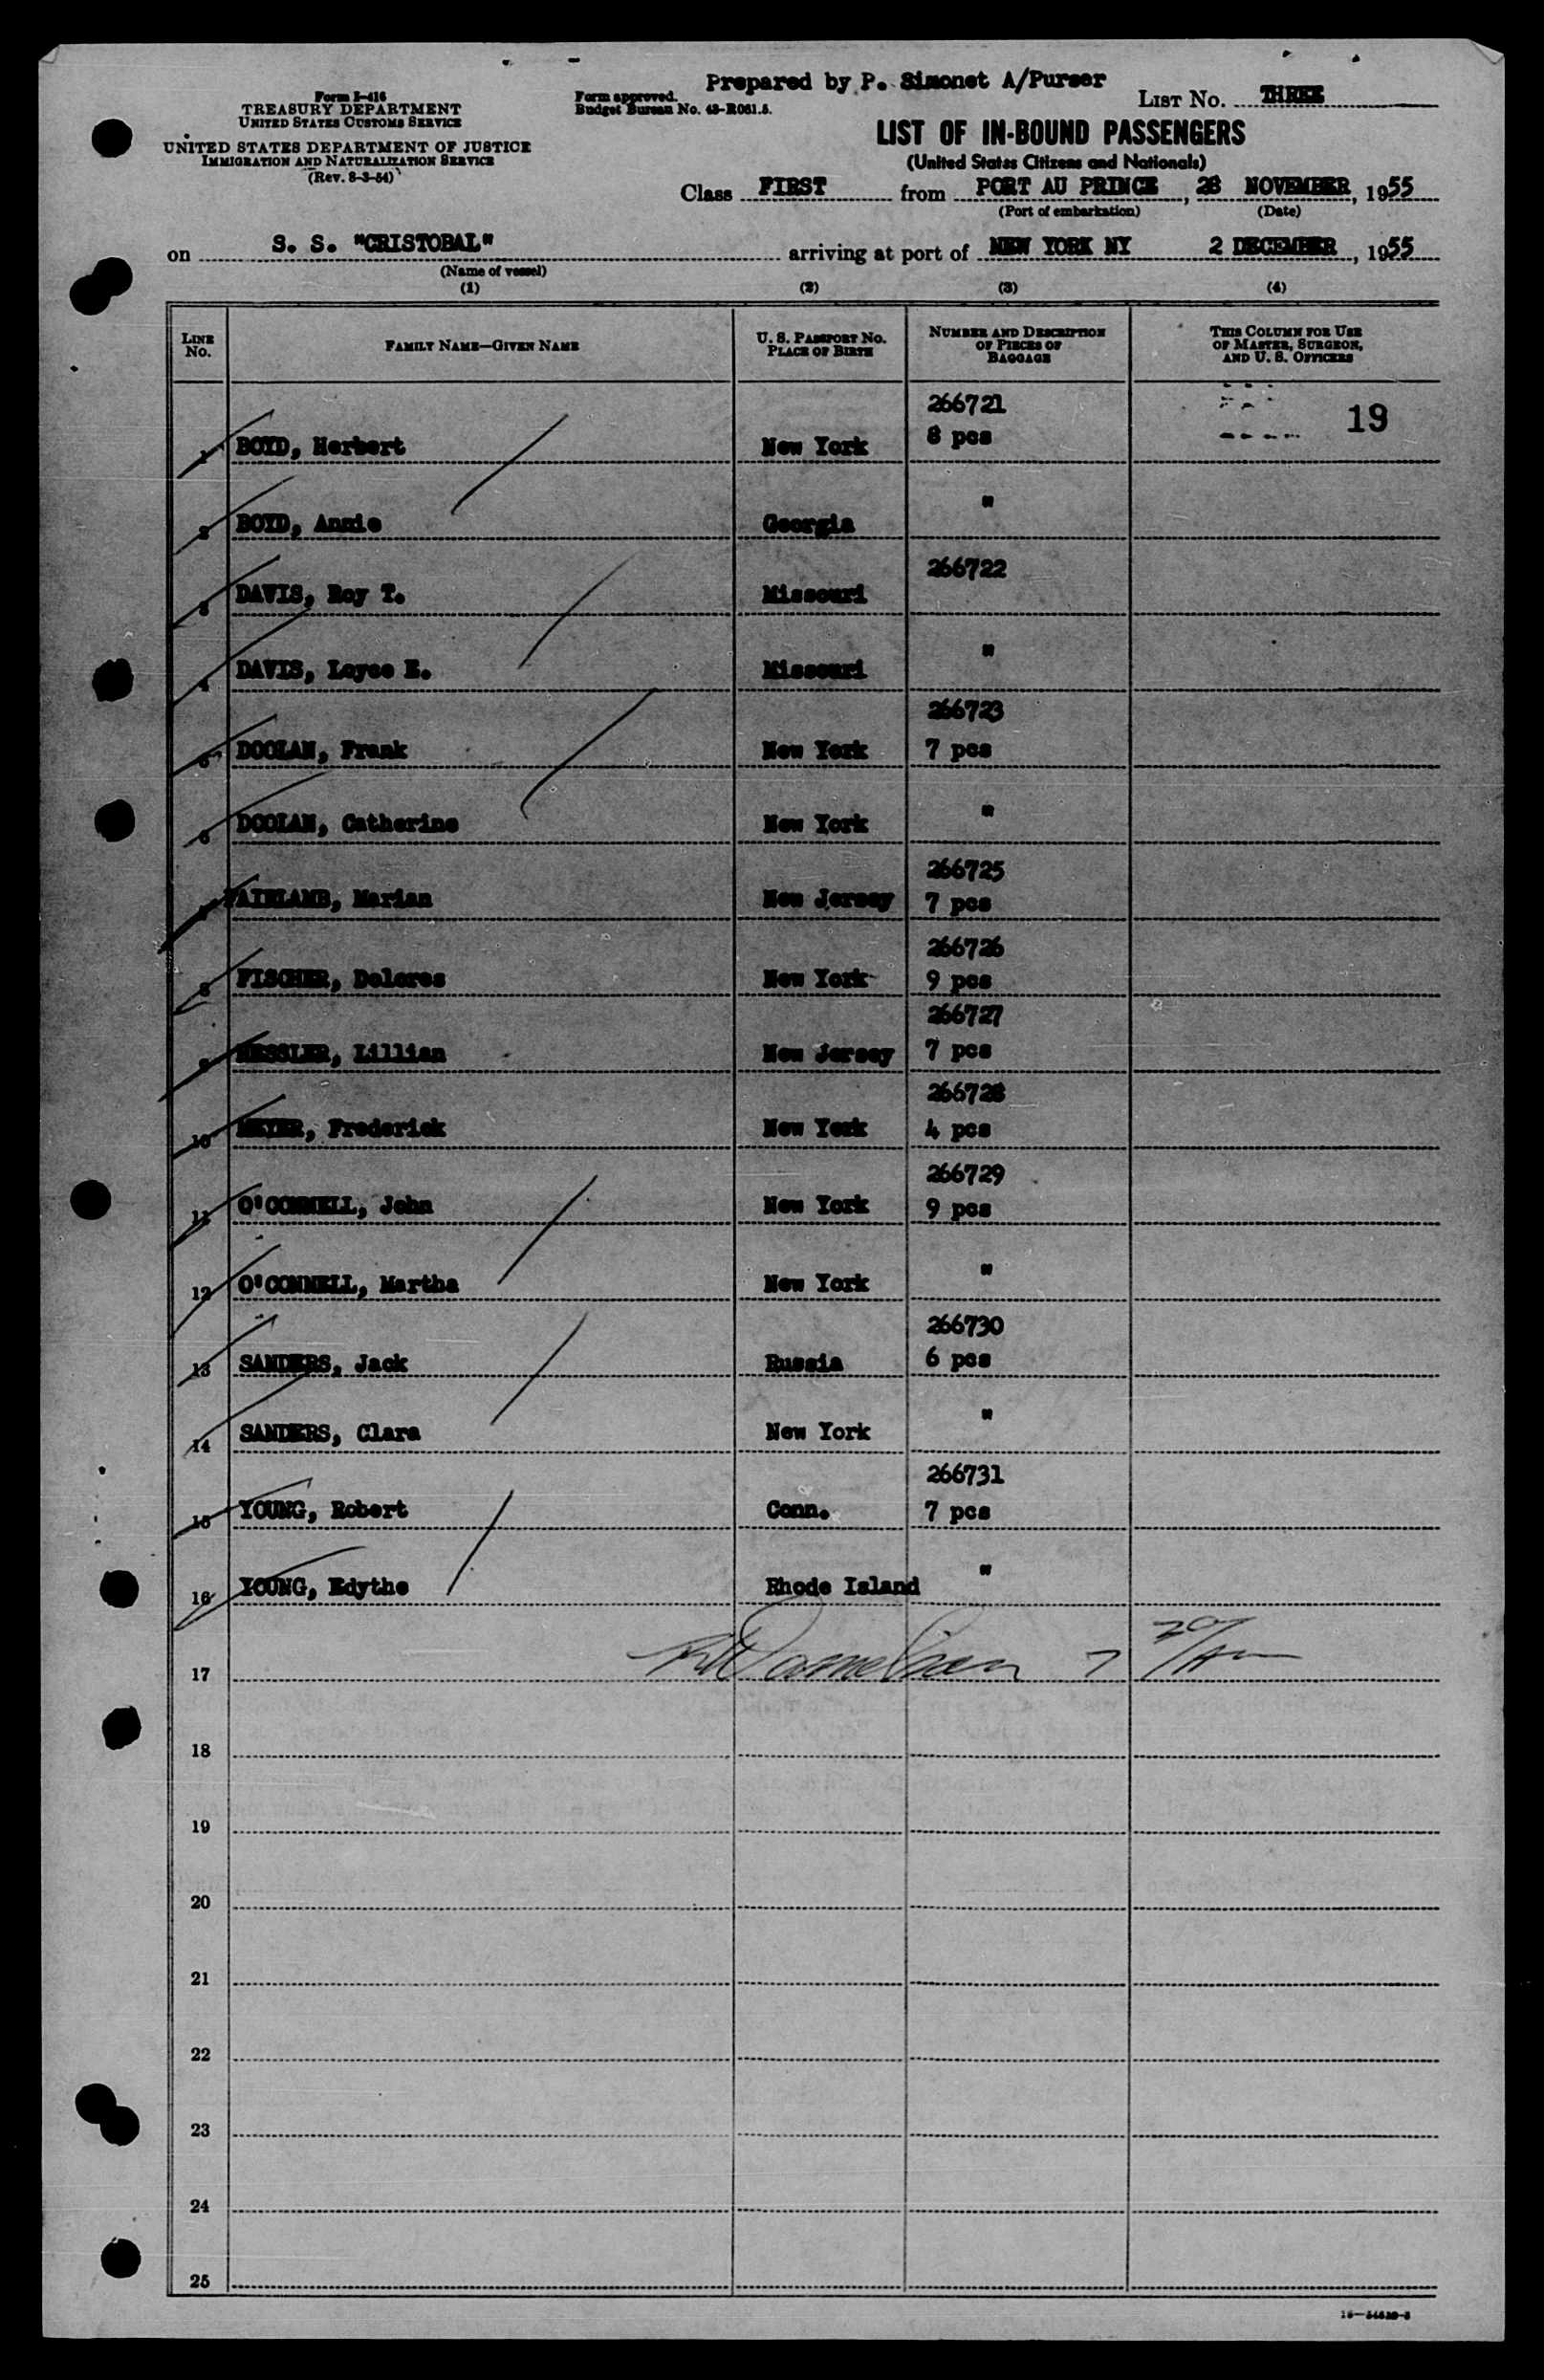 Prepared by P. Simonet A/Purser
Form I-416
TREASURY DEPARTMENT
UNITED STATES CUSTOMS SERVICE
UNITED STATES DEPARTMENT OF JUSTICE
IMMIGRATION AND NATURALIZATION SERVICE
(Rev. 8-3-54)
Form approved.
Budget Bureau No. 43-R081.5.
LIST NO. THREE
LIST OF IN-BOUND PASSENGERS
(United States Citizens and Nationals)
Class FIRST from PORT AU PRINCE, 28 NOVEMBER, 1955
(Port of embarkation) (Date)
on S. S. "CRISTOBAL" arriving at port of NEW YORK NY 2 DECEMBER, 1955
(Name of vessel)
(1) (2) (3) (4)
LINE NO. FAMILY NAME—GIVEN NAME U. S. PASSPORT NO. PLACE OF BIRTH NUMBER AND DESCRIPTION OF PIECES OF BAGGAGE THIS COLUMN FOR USE OF MASTER, SURGEON, AND U. S. OFFICERS
266721 19
1 BOYD, Herbert New York 8 pcs
2 BOYD, Annie Georgia "
266722
3 DAVIS, Roy T. Missouri
4 DAVIS, Loyce E. Missouri "
266723
5 DOOLAN, Frank New York 7 pcs
6 DOOLAN, Catherine New York "
266725
7 FAIRLAMB, Marian New Jersey 7 pcs
266726
8 FISCHER, Dolores New York 9 pcs
266727
9 HESSLER, Lillian New Jersey 7 pcs
266728
10 MEYER, Frederick New York 4 pcs
266729
11 O'CONNELL, John New York 9 pcs
12 O'CONNELL, Martha New York "
266730
13 SANDERS, Jack Russia 6 pcs
14 SANDERS, Clara New York "
266731
15 YOUNG, Robert Conn. 7 pcs
16 YOUNG, Edythe Rhode Island "
17
18
19
20
21
22
23
24
25